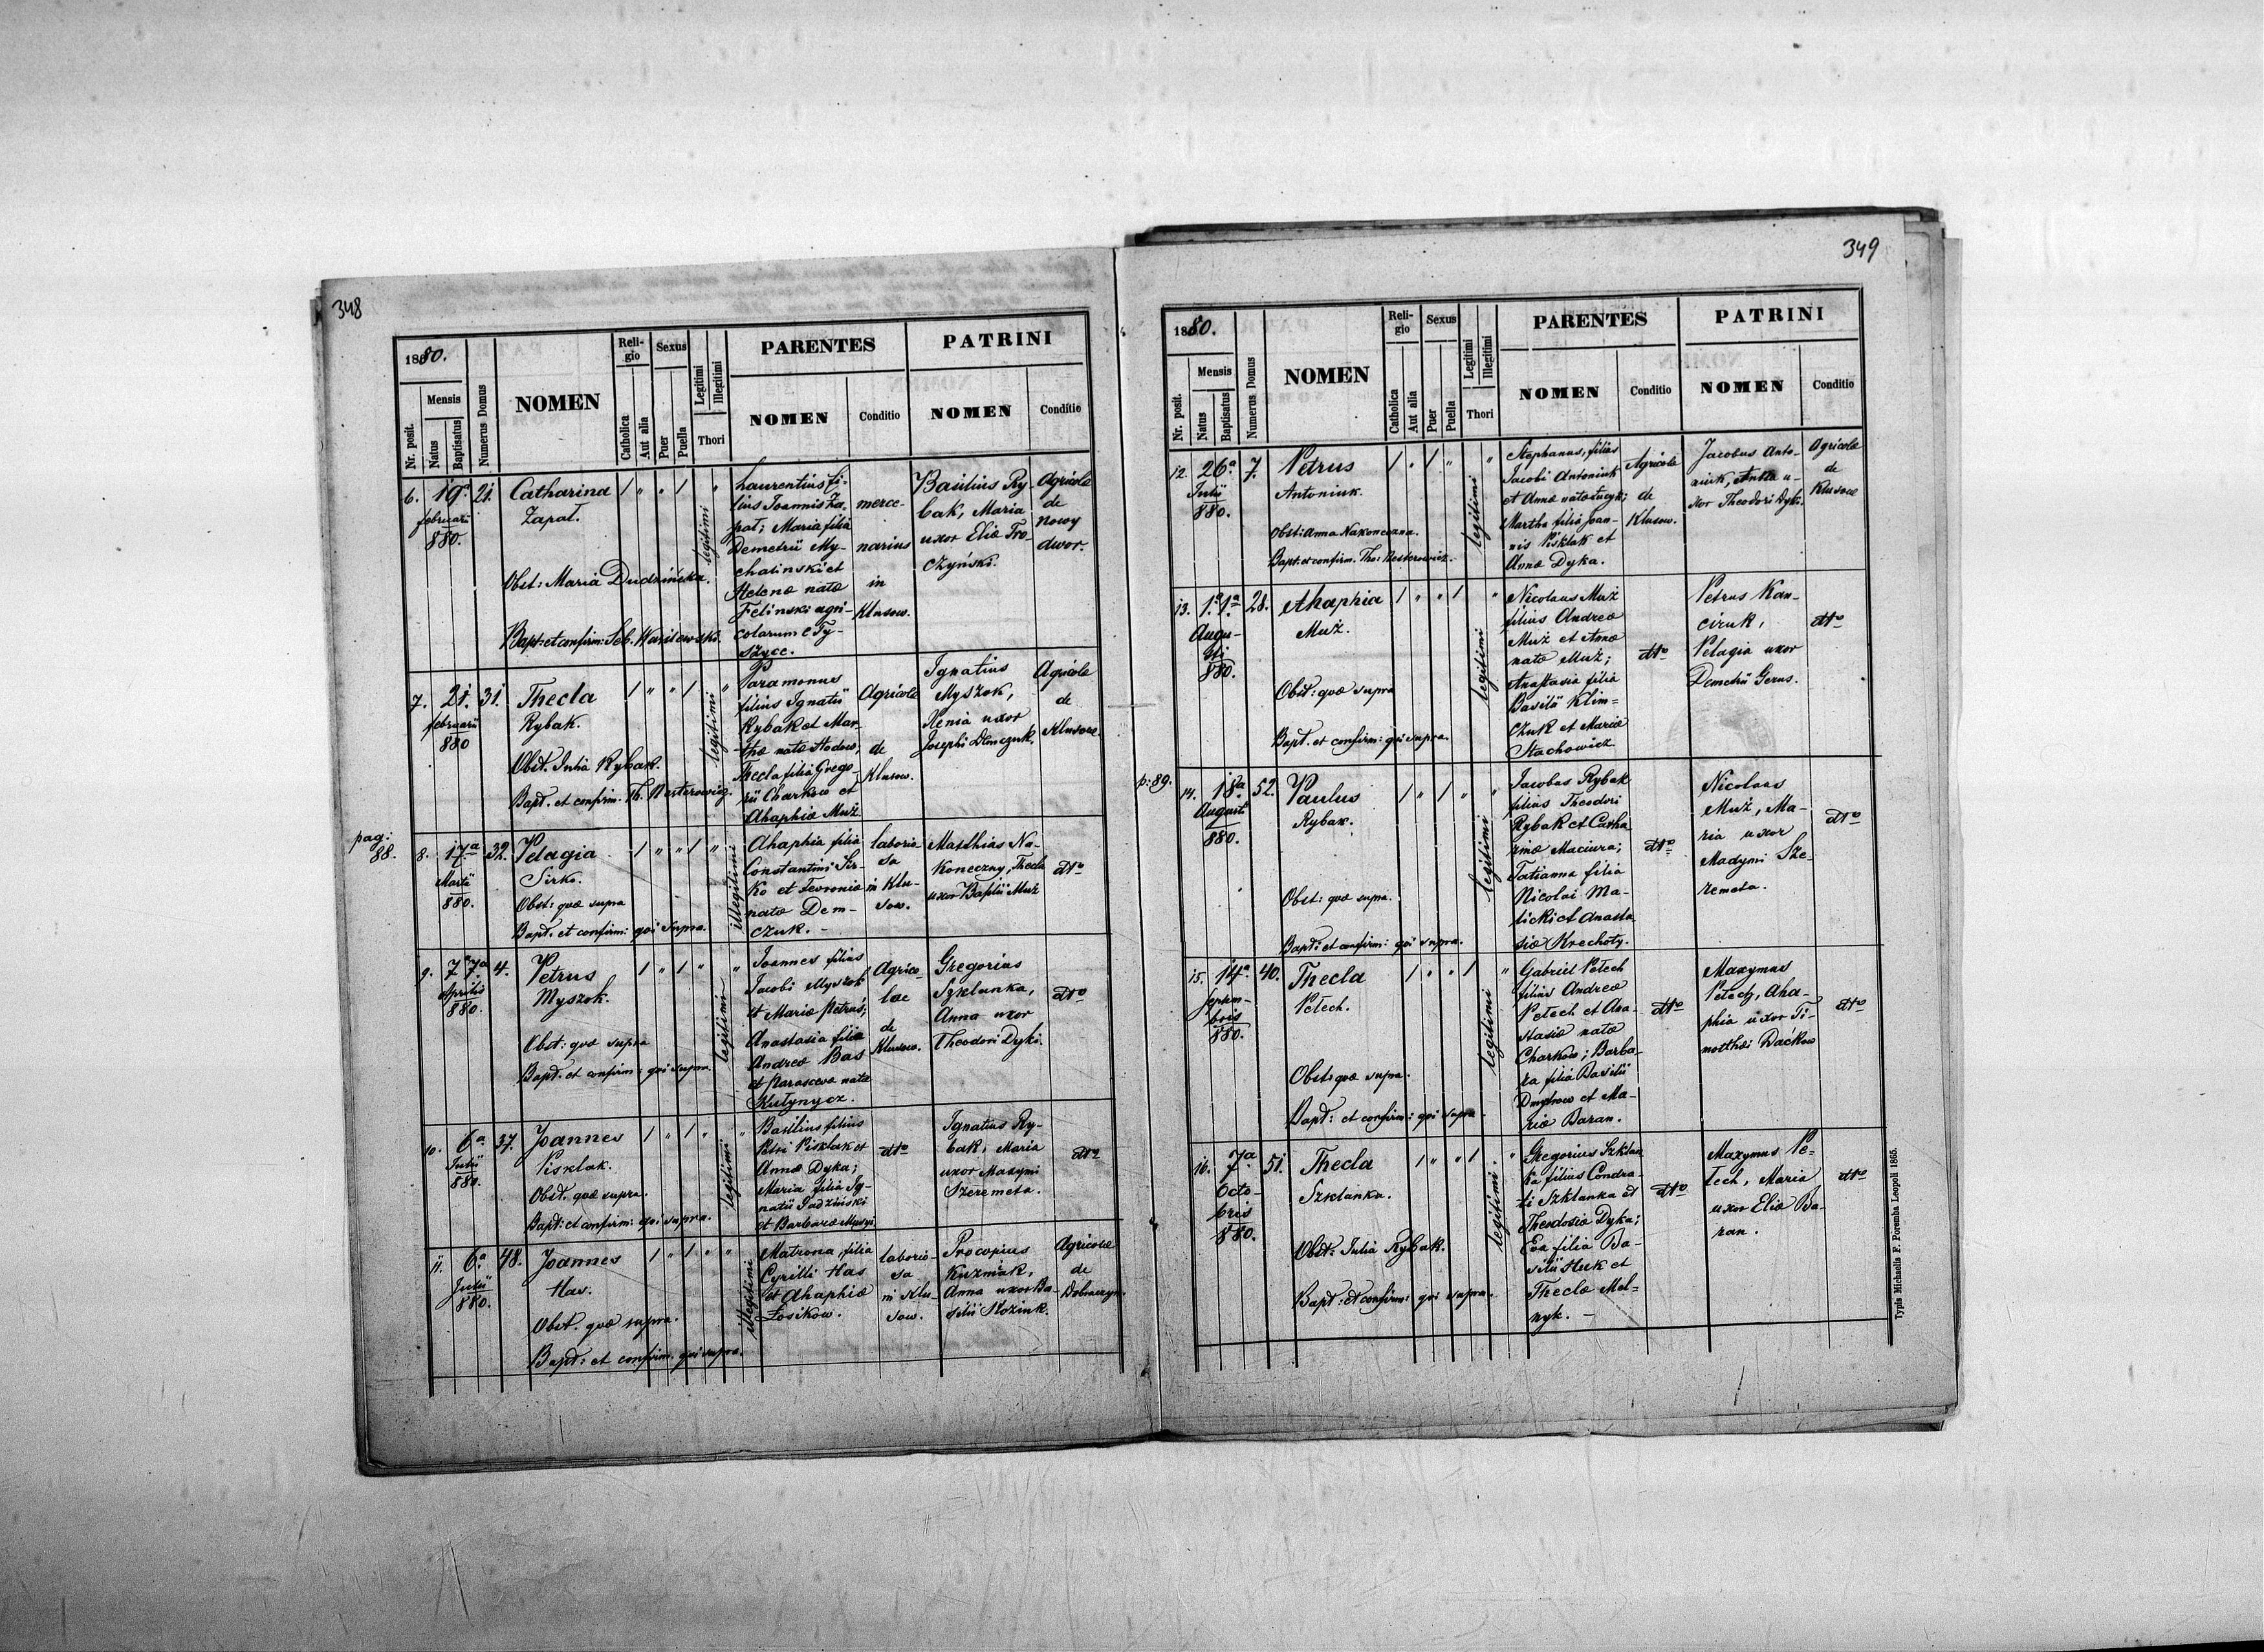 348
1880.
Nr. posit.
Mensis
Natus
Baptisatus
Numerus Domus
NOMEN
Reli-
gio
Catholica
Aut alia
Sexus
Puer
Puella
Legitimi
Illegitimi
Thori
PARENTES
NOMEN
Conditio
PATRINI
NOMEN
Conditio
6.
19a
februarii
880.
21.
Catharina
Zapał.
Obst: Maria Dudzińska.
Bapt: et confirm: Seb.
legitimi
Laurentius fi-
lius Joannis Za-
pał; Maria filia
Demetrii My-
chalinski et
Helenæ natæ
Felinski agri-
colarum e Ty-
szyce.
merce-
narius
in
Klusow.
Basilius Ry-
bak, Maria
uxor Eliæ Tro-
czyński.
Agricolæ
de
Nowy
dwor.
7.
21.
februarii
880
31.
Thecla
Rybak.
Obst. Julia Rybak.
Bapt. et confirm. Th. Nesterowicz.
legitimi
Paramonus
filius Ignatii
Rybak et Mar-
thæ natæ
Thecla filia Grego-
rii Charkow et
Ahaphiæ Muż
Agricolæ
de
Klusow.
Ignatius
Myszok,
Xenia uxor
Josephi Demczuk.
Agricolæ
de
Klusow.
pag:
88.
8.
17a
Martii
880.
32.
Pelagia
Sirko.
Obst: quæ supra
Bapt. et confirm: qui supra.
illegitimi
Ahaphia filia
Constantini Sir-
ko et Fevroniæ
natæ Dem-
czuk. -
laborio-
sa
in Klu-
sow.
Matthias Na-
koneczny, Thecla
uxor Basilii Muż
dtto
9.
7 7a
Aprilis
880.
4.
Petrus
Myszok.
Obst: quæ supra
Bapt. et confirm: qui supra.
legitimi
Joannes filius
Jacobi Myszok
et Mariæ Petruś;
Anastasia filia
Andreæ Bas
et Parascevæ natæ
Kutynycz.
Agrico-
lae
de
Klusow.
Gregorius
Szklanka,
Anna uxor
Theodori Dyki.
dtto
10.
6a
Julii
880.
37.
Joannes
Pisklak.
Obst. quæ supra.
Bapt: et confirm: qui supra.
legitimi
Basilius filius
Petri Pisklak et
Annæ Dyka;
Maria filia Ig-
natii Sadziński
et Barbaræ
dtto
Ignatius Ry-
bak, Maria
uxor Maxymi
Szeremeta.
dtto
11.
6a
Julii
880.
48.
Joannes
Has.
Obst. quæ supra.
Bapt: et confirm. qui supra.
illegitimi
Matrona, filia
Cyrilli Has
et Ahaphiæ
Łosikow.
laborio-
sa
in Klu-
sow.
Procopius
Kuzmiak,
Anna uxor Ba-
silii Kozink.
Agricolæ
de
349
1880.
Nr. posit.
Mensis
Natus
Baptisatus
Numerus Domus
NOMEN
Reli-
gio
Catholica
Aut alia
Sexus
Puer
Puella
Legitimi
Illegitimi
Thori
PARENTES
NOMEN
Conditio
PATRINI
NOMEN
Conditio
12.
26a
Julii
880.
7.
Petrus
Antoniuk.
Obst: Anna Nakoneczna.
Bapt: et confirm. Tho: Nesterowicz.
legitimi
Stephanus, filius
Jacobi Antoniuk
et Annæ natæ
Martha filia Joan-
nis Pisklak et
Annæ Dyka.
Agricolæ
de
Klusow.
Jacobus Anto-
niuk, Anna u-
xor Theodori Dyki.
Agricolæ
de
Klusow
13.
1a 1a
Augu-
sti
880.
28.
Ahaphia
Muż.
Obst: quæ supra
Bapt. et confirm: qui supra.
legitimi
Nicolaus Muż
filius Andreæ
Muż et Annæ
natæ Muż;
Anastasia filia
Basilii Klim=
czuk et Mariæ
Stachowicz
dtto
Petrus Kan-
ciruk,
Pelagia uxor
Demetrii Gerus.
dtto
p: 89.
14.
18a
Augusti
880.
52.
Paulus
Rybak.
Obst: quæ supra.
Bapt: et confirm: qui supra.
legitimi
Jacobus Rybak
filius Theodori
Rybak et Catha
rinæ Maciura;
Tatianna filia
Nicolai Ma-
licki et Anasta
siæ Krechoty.
dtto
Nicolaus
Muż, Ma-
ria uxor
Maxymi Sze-
remeta.
dtto
15.
14a
Septem-
bris
880.
40.
Thecla
Petech.
Obst: quæ supra.
Bapt: et confirm: qui supra.
legitimi
Gabriel Petech
filius Andreæ
Petech et Ana-
stasiæ natæ
Charkow; Barba-
ra filia Basilii
Dmytrow et Ma-
riæ Baran.
dtto
Maxymus
Petech, Aha-
phia uxor Ti-
mothei Daćkow
dtto
16.
7a
Octo-
bris
880.
51.
Thecla
Szklanka.
Obst: Julia Rybak.
Bapt: et confirm: qui supra.
legitimi
Gregorius Szklan
ka filius Condra-
ti Szklanka et
Theodosiæ Dyka;
Eva filia Ba-
silii Huk et
Theclæ Mel=
nyk. -
dtto
Maxymus Pe=
tech, Maria
uxor Eliæ Ba-
ran.
dtto
Typis Michaelis F. Poremba Leopoli 1865.